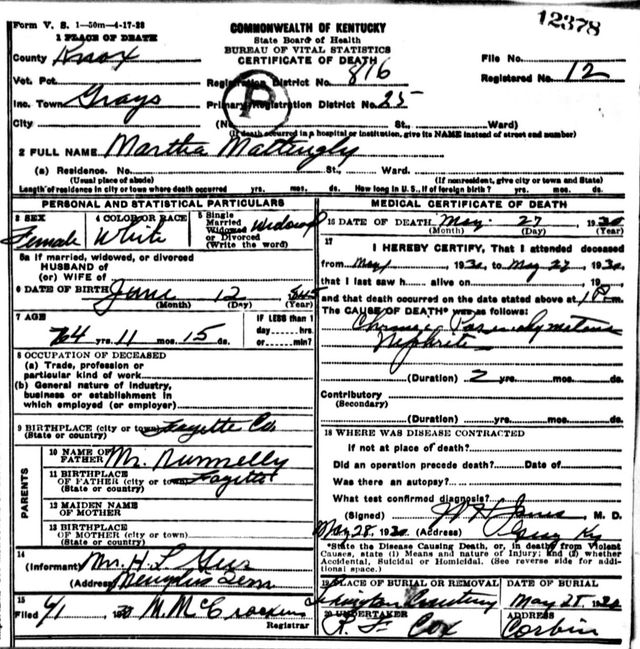 12378
Form V. S. 1-50m-4-17-28
1 PLACE OF DEATH
COMMONWEALTH OF KENTUCKY
State Board of Health
BUREAU OF VITAL STATISTICS
CERTIFICATE OF DEATH
County Knox
File No.
Vot. Pct.
Registration District No. 816
Registered No. 12
Inc. Town Grays
Primary Registration District No. 25
P
City (No. St., Ward)
(If death occurred in a hospital or institution, give its NAME instead of street and number)
2 FULL NAME Martha Mattingly
(a) Residence. No. St., Ward.
(Usual place of abode) (If nonresident, give city or town and State)
Length of residence in city or town where death occurred yrs. mos. ds. How long in U. S., if of foreign birth? yrs. mos. ds.
PERSONAL AND STATISTICAL PARTICULARS
3 SEX Female
4 COLOR OR RACE White
5 Single
Married
Widowed Widow
or Divorced
(Write the word)
5a If married, widowed, or divorced
HUSBAND of
(or) WIFE of
6 DATE OF BIRTH June 12
(Month) (Day) (Year)
7 AGE
IF LESS than 1
day hrs.
or min.?
yrs. 11 mos. 15 ds.
8 OCCUPATION OF DECEASED
(a) Trade, profession or
particular kind of work
(b) General nature of Industry,
business or establishment in
which employed (or employer)
9 BIRTHPLACE (city or town) Fayette Co
(State or country)
PARENTS
10 NAME OF
FATHER Mr. Nunnelly
11 BIRTHPLACE
OF FATHER (city or town) Fayette
(State or country)
12 MAIDEN NAME
OF MOTHER
13 BIRTHPLACE
OF MOTHER (city or town)
(State or country)
14
(Informant) Mr. H. L.
(Address) Memphis Tenn
15
Filed 6/1 30 M. McCrackin
Registrar
MEDICAL CERTIFICATE OF DEATH
16 DATE OF DEATH May 27 1930
(Month) (Day) (Year)
17
I HEREBY CERTIFY, That I attended deceased
from May 1930 to May 27 1930
that I last saw h alive on 19
and that death occurred on the date stated above at 1 P m.
The CAUSE OF DEATH* was as follows:
Chronic Parenchymatous
Nephritis
(Duration) 2 yrs. mos. ds.
Contributory
(Secondary)
(Duration) yrs. mos. ds.
18 WHERE WAS DISEASE CONTRACTED
If not at place of death?
Did an operation precede death? Date of
Was there an autopsy?
What test confirmed diagnosis?
(Signed) M. D.
May 28 1930 (Address) Gray Ky
*State the Disease Causing Death, or, in deaths from Violent
Causes, state (1) Means and nature of Injury; and (2) whether
Accidental, Suicidal or Homicidal. (See reverse side for addi-
tional space.)
19 PLACE OF BURIAL OR REMOVAL
Lexington Cemetery
DATE OF BURIAL
May 28 1930
20 UNDERTAKER
R. F. Cox
ADDRESS
Corbin